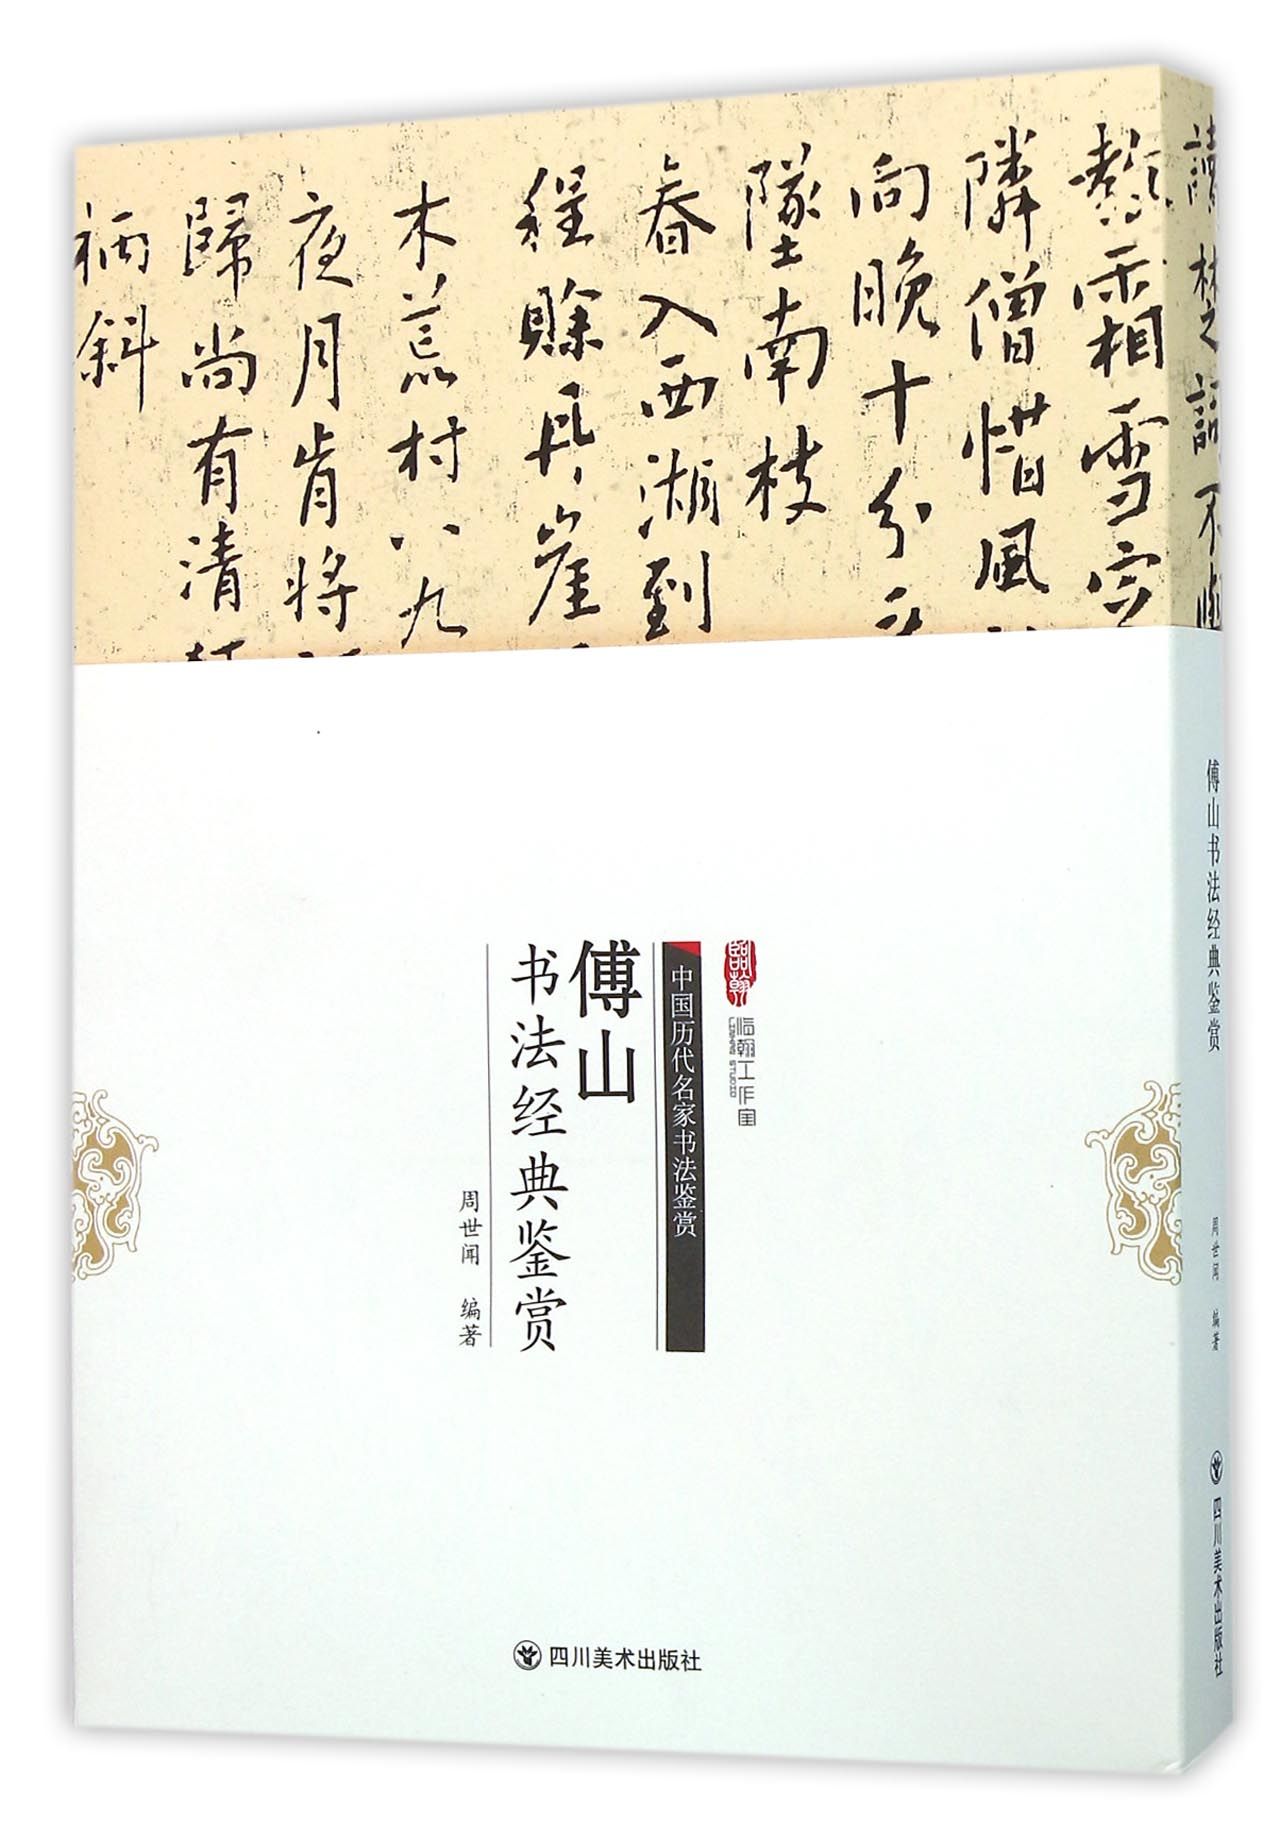 隣僧惜風
向晚十分
墜南枝
春入西湖到
程賒兵崖
木荒村八九
夜月肯將
歸尚有清
柄斜
临翰工作室
中国历代名家书法鉴赏
傅山
书法经典鉴赏
周世闻 编著
四川美术出版社
傅山书法经典鉴赏
周世闻 编著
四川美术出版社